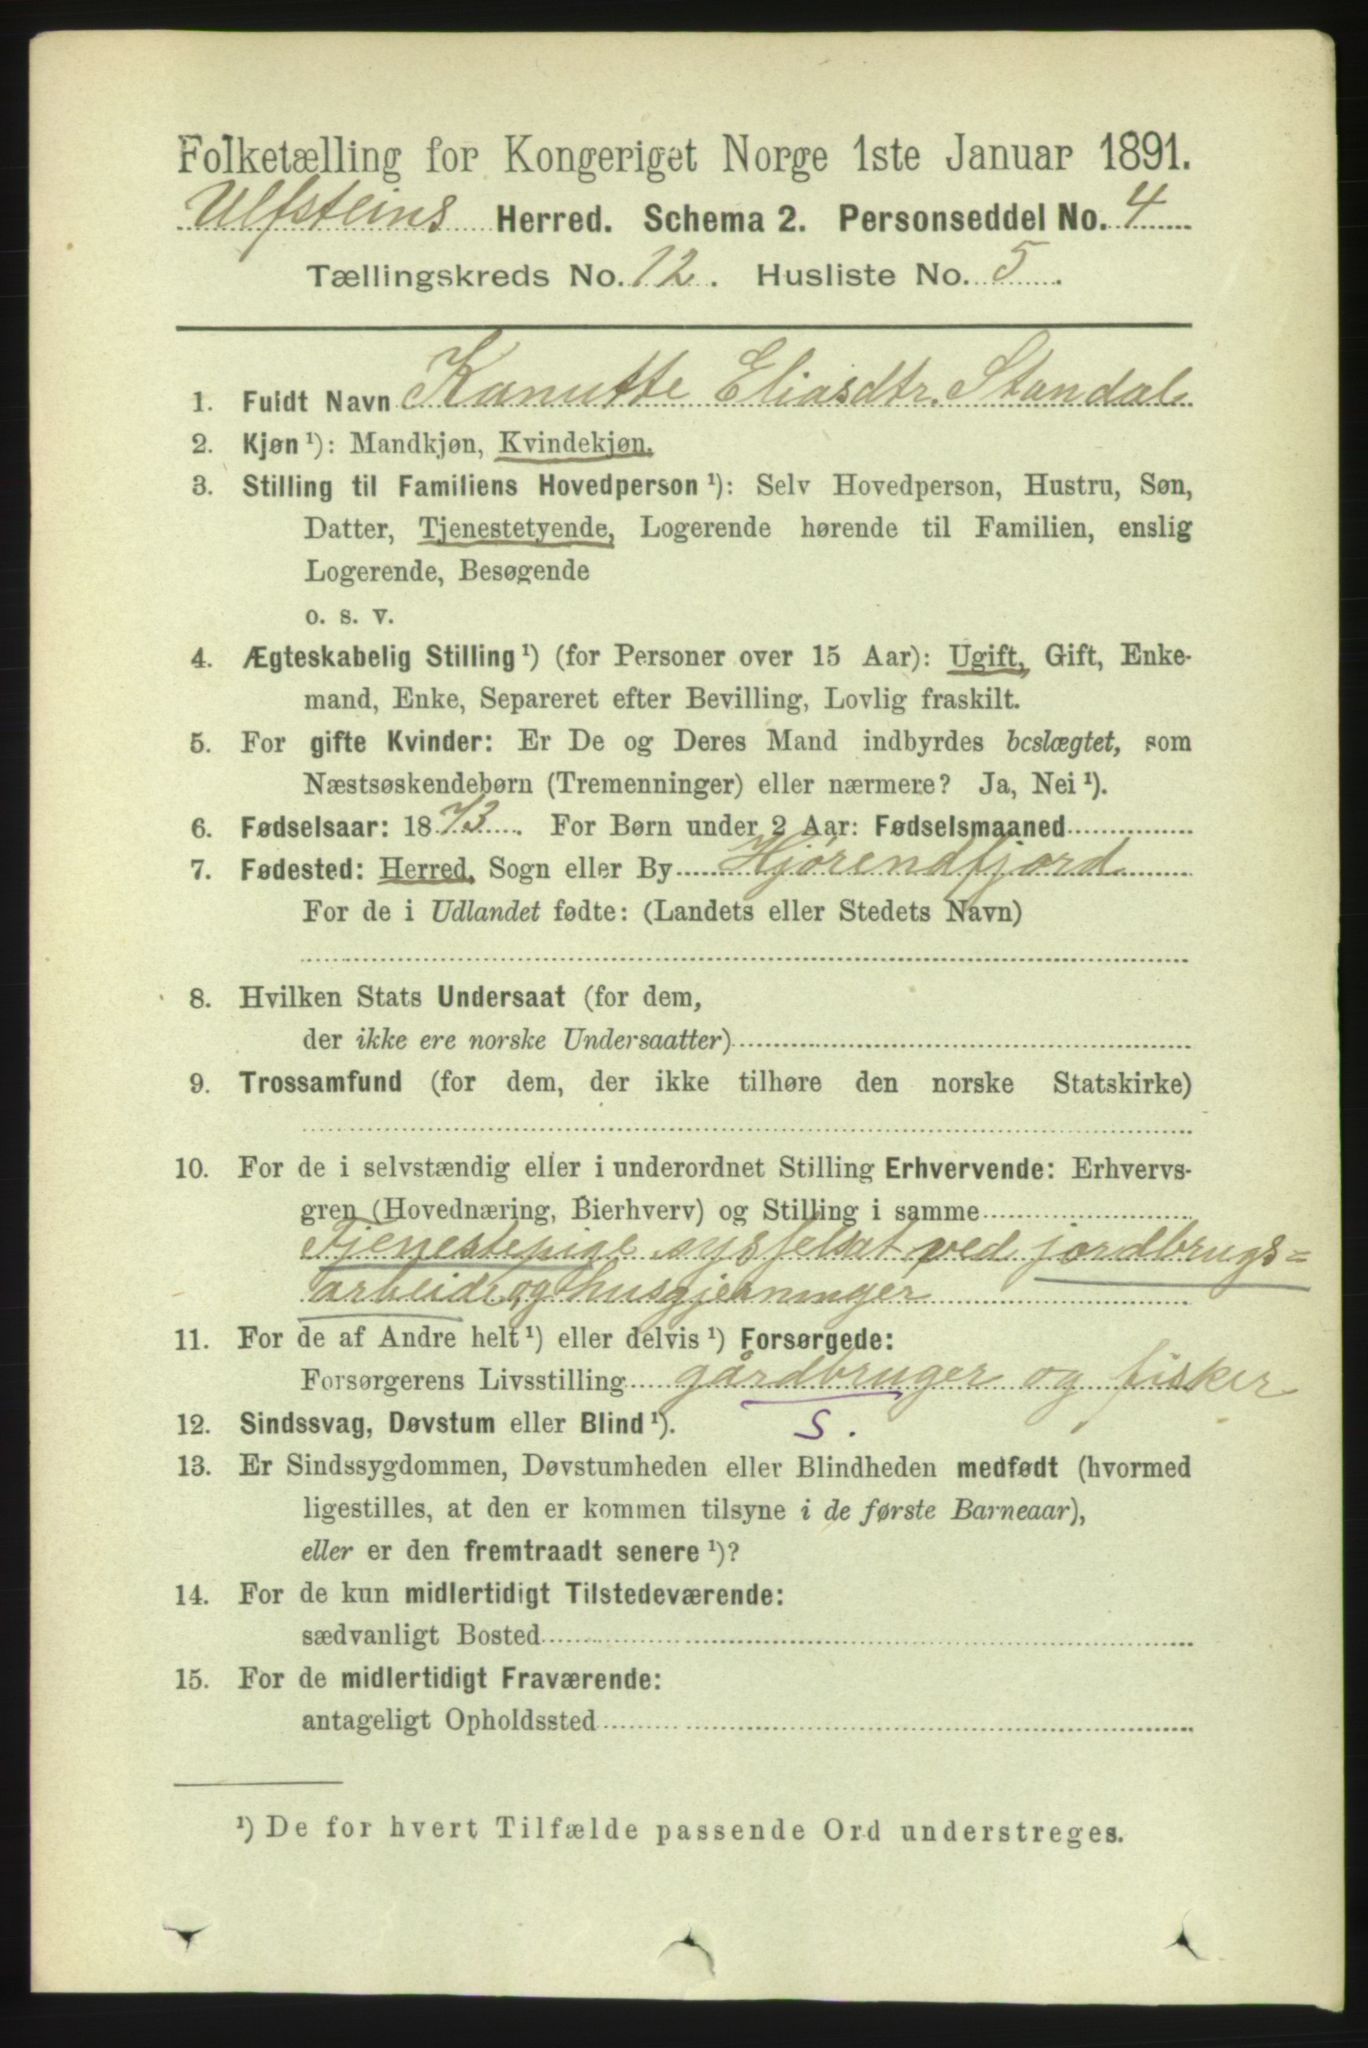 Folketælling for Kongeriget Norge 1ste Januar 1891.
Ulfsteins Herred. Schema 2. Personseddel No. 4
Tællingskreds No. 12. Husliste No. 5.
1. Fuldt Navn Kanutte Eliasdtr. Standal
2. Kjøn ¹): Mandkjøn, Kvindekjøn.
3. Stilling til Familiens Hovedperson ¹): Selv Hovedperson, Hustru, Søn,
Datter, Tjenestetyende, Logerende hørende til Familien, enslig
Logerende, Besøgende
o. s. v.
4. Ægteskabelig Stilling ¹) (for Personer over 15 Aar): Ugift, Gift, Enke-
mand, Enke, Separeret efter Bevilling, Lovlig fraskilt.
5. For gifte Kvinder: Er De og Deres Mand indbyrdes beslægtet, som
Næstsøskendebørn (Tremenninger) eller nærmere? Ja, Nei ¹).
6. Fødselsaar: 1873. For Børn under 2 Aar: Fødselsmaaned
7. Fødested: Herred, Sogn eller By Hjørendfjord
For de i Udlandet fødte: (Landets eller Stedets Navn)
8. Hvilken Stats Undersaat (for dem,
der ikke ere norske Undersaatter)
9. Trossamfund (for dem, der ikke tilhøre den norske Statskirke)
10. For de i selvstændig eller i underordnet Stilling Erhvervende: Erhvervs-
gren (Hovednæring, Bierhverv) og Stilling i samme
Tjenestepige sysselsat ved jordbrugs=
arbeide og husgjerninger
11. For de af Andre helt ¹) eller delvis ¹) Forsørgede:
Forsørgerens Livsstilling gårdbruger og fisker
12. Sindssvag, Døvstum eller Blind ¹). S.
13. Er Sindssygdommen, Døvstumheden eller Blindheden medfødt (hvormed
ligestilles, at den er kommen tilsyne i de første Barneaar),
eller er den fremtraadt senere ¹)?
14. For de kun midlertidigt Tilstedeværende:
sædvanligt Bosted
15. For de midlertidigt Fraværende:
antageligt Opholdssted
¹) De for hvert Tilfælde passende Ord understreges.